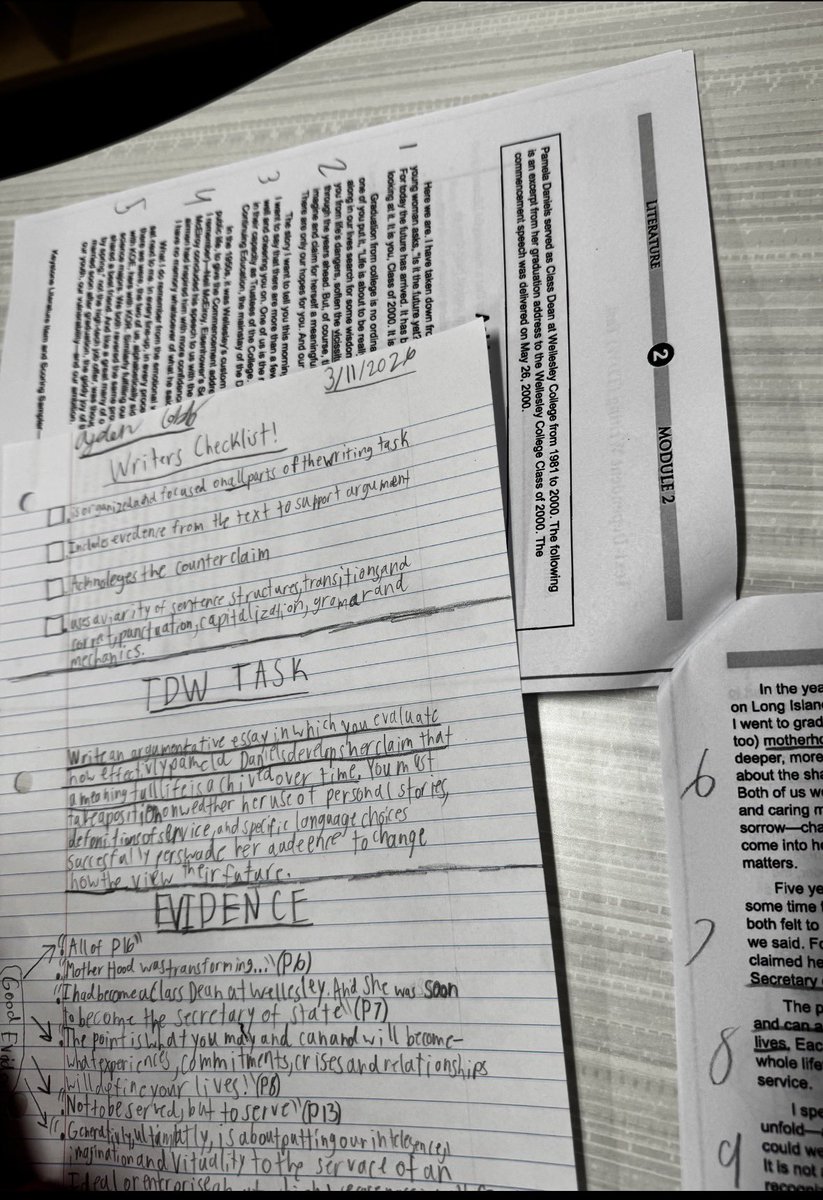 LITERATURE 2 MODULE 2
Pamela Daniels served as Class Dean at Wellesley College from 1981 to 2000. The following
is an excerpt from her graduation address to the Wellesley College Class of 2000. The
commencement speech was delivered on May 26, 2000.
1
Here we are. I have taken down fr
young woman asks, "Is it the future yet?
For today the future has arrived. It has b
looking at it. It is you, Class of 2000. It is
2
Graduation from college is no ordina
one of you put it, "Life is about to be reall
along in our lives search for some wisdom
you from life's dangers, soften the
through the years ahead. But, of course, t
imagine and claim for herself a meaningful
There are only our hopes for you. And our
3
The story I want to tell you this mornin
I want to say that there are more than a few
well and cheering you on. One of us is the
in their capacity as Trustees of the College.
Continuing Education, the mainstay of the D
4
In the 1950s, it was Wellesley's custom
public life, to give the Commencement addre
I remember)—Neil McElroy, Eisenhower's Se
McElroy concluded his speech to us with the
armed had landed, with more confidence
I have no memory whatsoever of what he said
5
What I do remember from the emotional
sat next to me. In every line-up, in every proce
there we were, the two of us, alphabetically
with KOR, Jews with KOR. Similarly fulfilling our
science majors. We both revered the same pro
shared a best friend. And like a great many of o
by spring," not the high-tech job offer, was
married soon after graduation, the giddy joy of
our youth, our vulnerability—and our ambition.
Keystone Literature Item and Scoring Sampler—
3/11/2026
Ayden Cobb
Writers Checklist!
is organized and focused on all parts of the writing task
Includes evidence from the text to support argument
Acknoleges the counterclaim
uses a viarity of sentence structures, transitions, and
corret, punctuation, capitalization, gromar and
mechanics.
TDW TASK
Write an argumentative essay in which you evaluate
how effectivly pamela Daniels develops her claim that
a meaning full life is achived over time. You must
take a position on weather her use of personal stories,
defonitions of service, and specific language choices
successfully perswade her audeence to change
how the view their future.
EVIDENCE
"All of P16"
"Mother Hood was transforming..." (P6)
"I had become a class Dean at wellesley. And she was soon
to become the secretary of state" (P7)
"The point is what you may and can and will become-
what experiences, commitments, crises and relationships
will define your lives!" (P8)
"Not to be served, but to serve" (P13)
"Generativity, ultamiatly, is about putting our intelegence,
imagination and Vituality to the servace of an
Good
6
In the yea
on Long Islan
I went to grad
too) motherho
deeper, more
about the sha
Both of us we
and caring m
sorrow—cha
come into he
matters.
7
Five ye
some time
both felt to
we said. Fo
claimed he
Secretary
8
The p
and can a
lives. Eac
whole life
service.
9
I spe
unfold—
could we
It is not